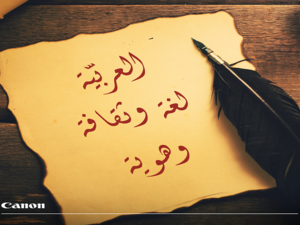 العربيّة
لغة وثقافة
وهوية
Canon